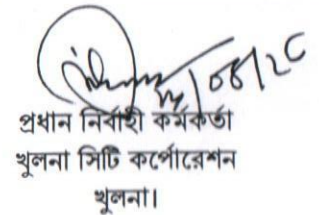 প্রধান নির্বাহী কর্মকর্তা
খুলনা সিটি কর্পোরেশন
খুলনা।